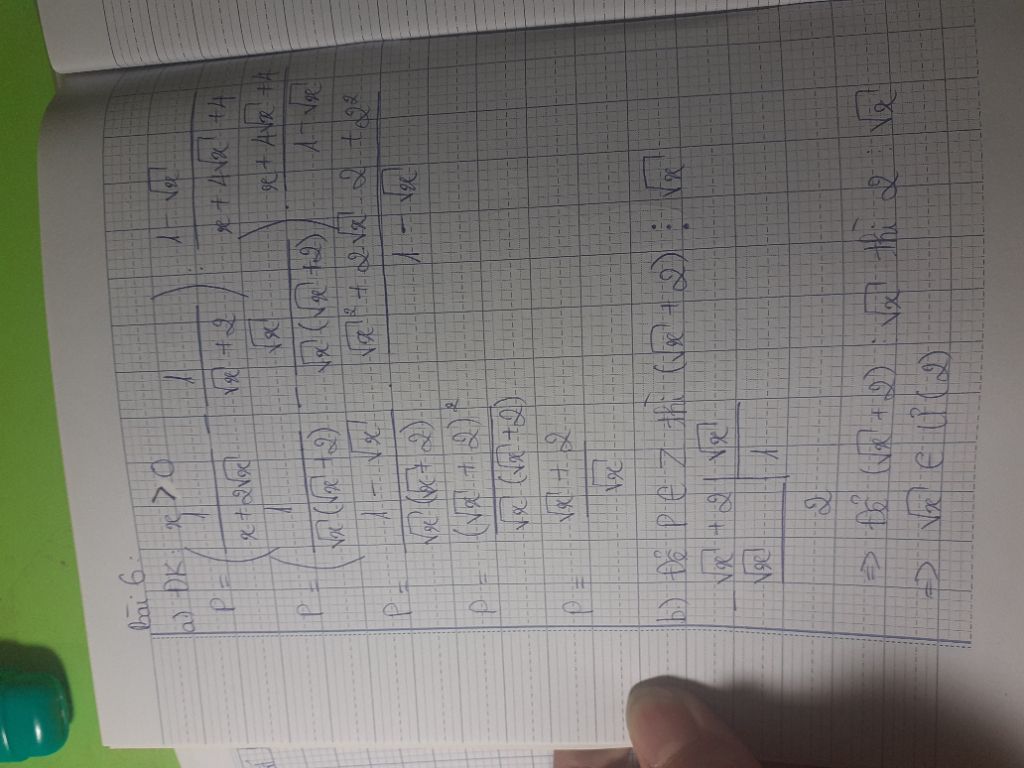 Bài 6.
a) ĐK: x > 0
P = (1/(x + 2√x) - 1/(√x + 2)) : (1 - √x)/(x + 4√x + 4)
P = (1/(√x(√x + 2)) - √x/(√x(√x + 2))) . (x + 4√x + 4)/(1 - √x)
P = (1 - √x)/(√x(√x + 2)) . (√x² + 2√x . 2 + 2²)/(1 - √x)
P = (√x + 2)²/(√x(√x + 2))
P = (√x + 2)/√x
b) Để P ∈ Z thì (√x + 2) ⋮ √x
- √x + 2 | √x
√x | 1
2
=> Để (√x + 2) ⋮ √x thì 2 ⋮ √x
=> √x ∈ Ư(2)